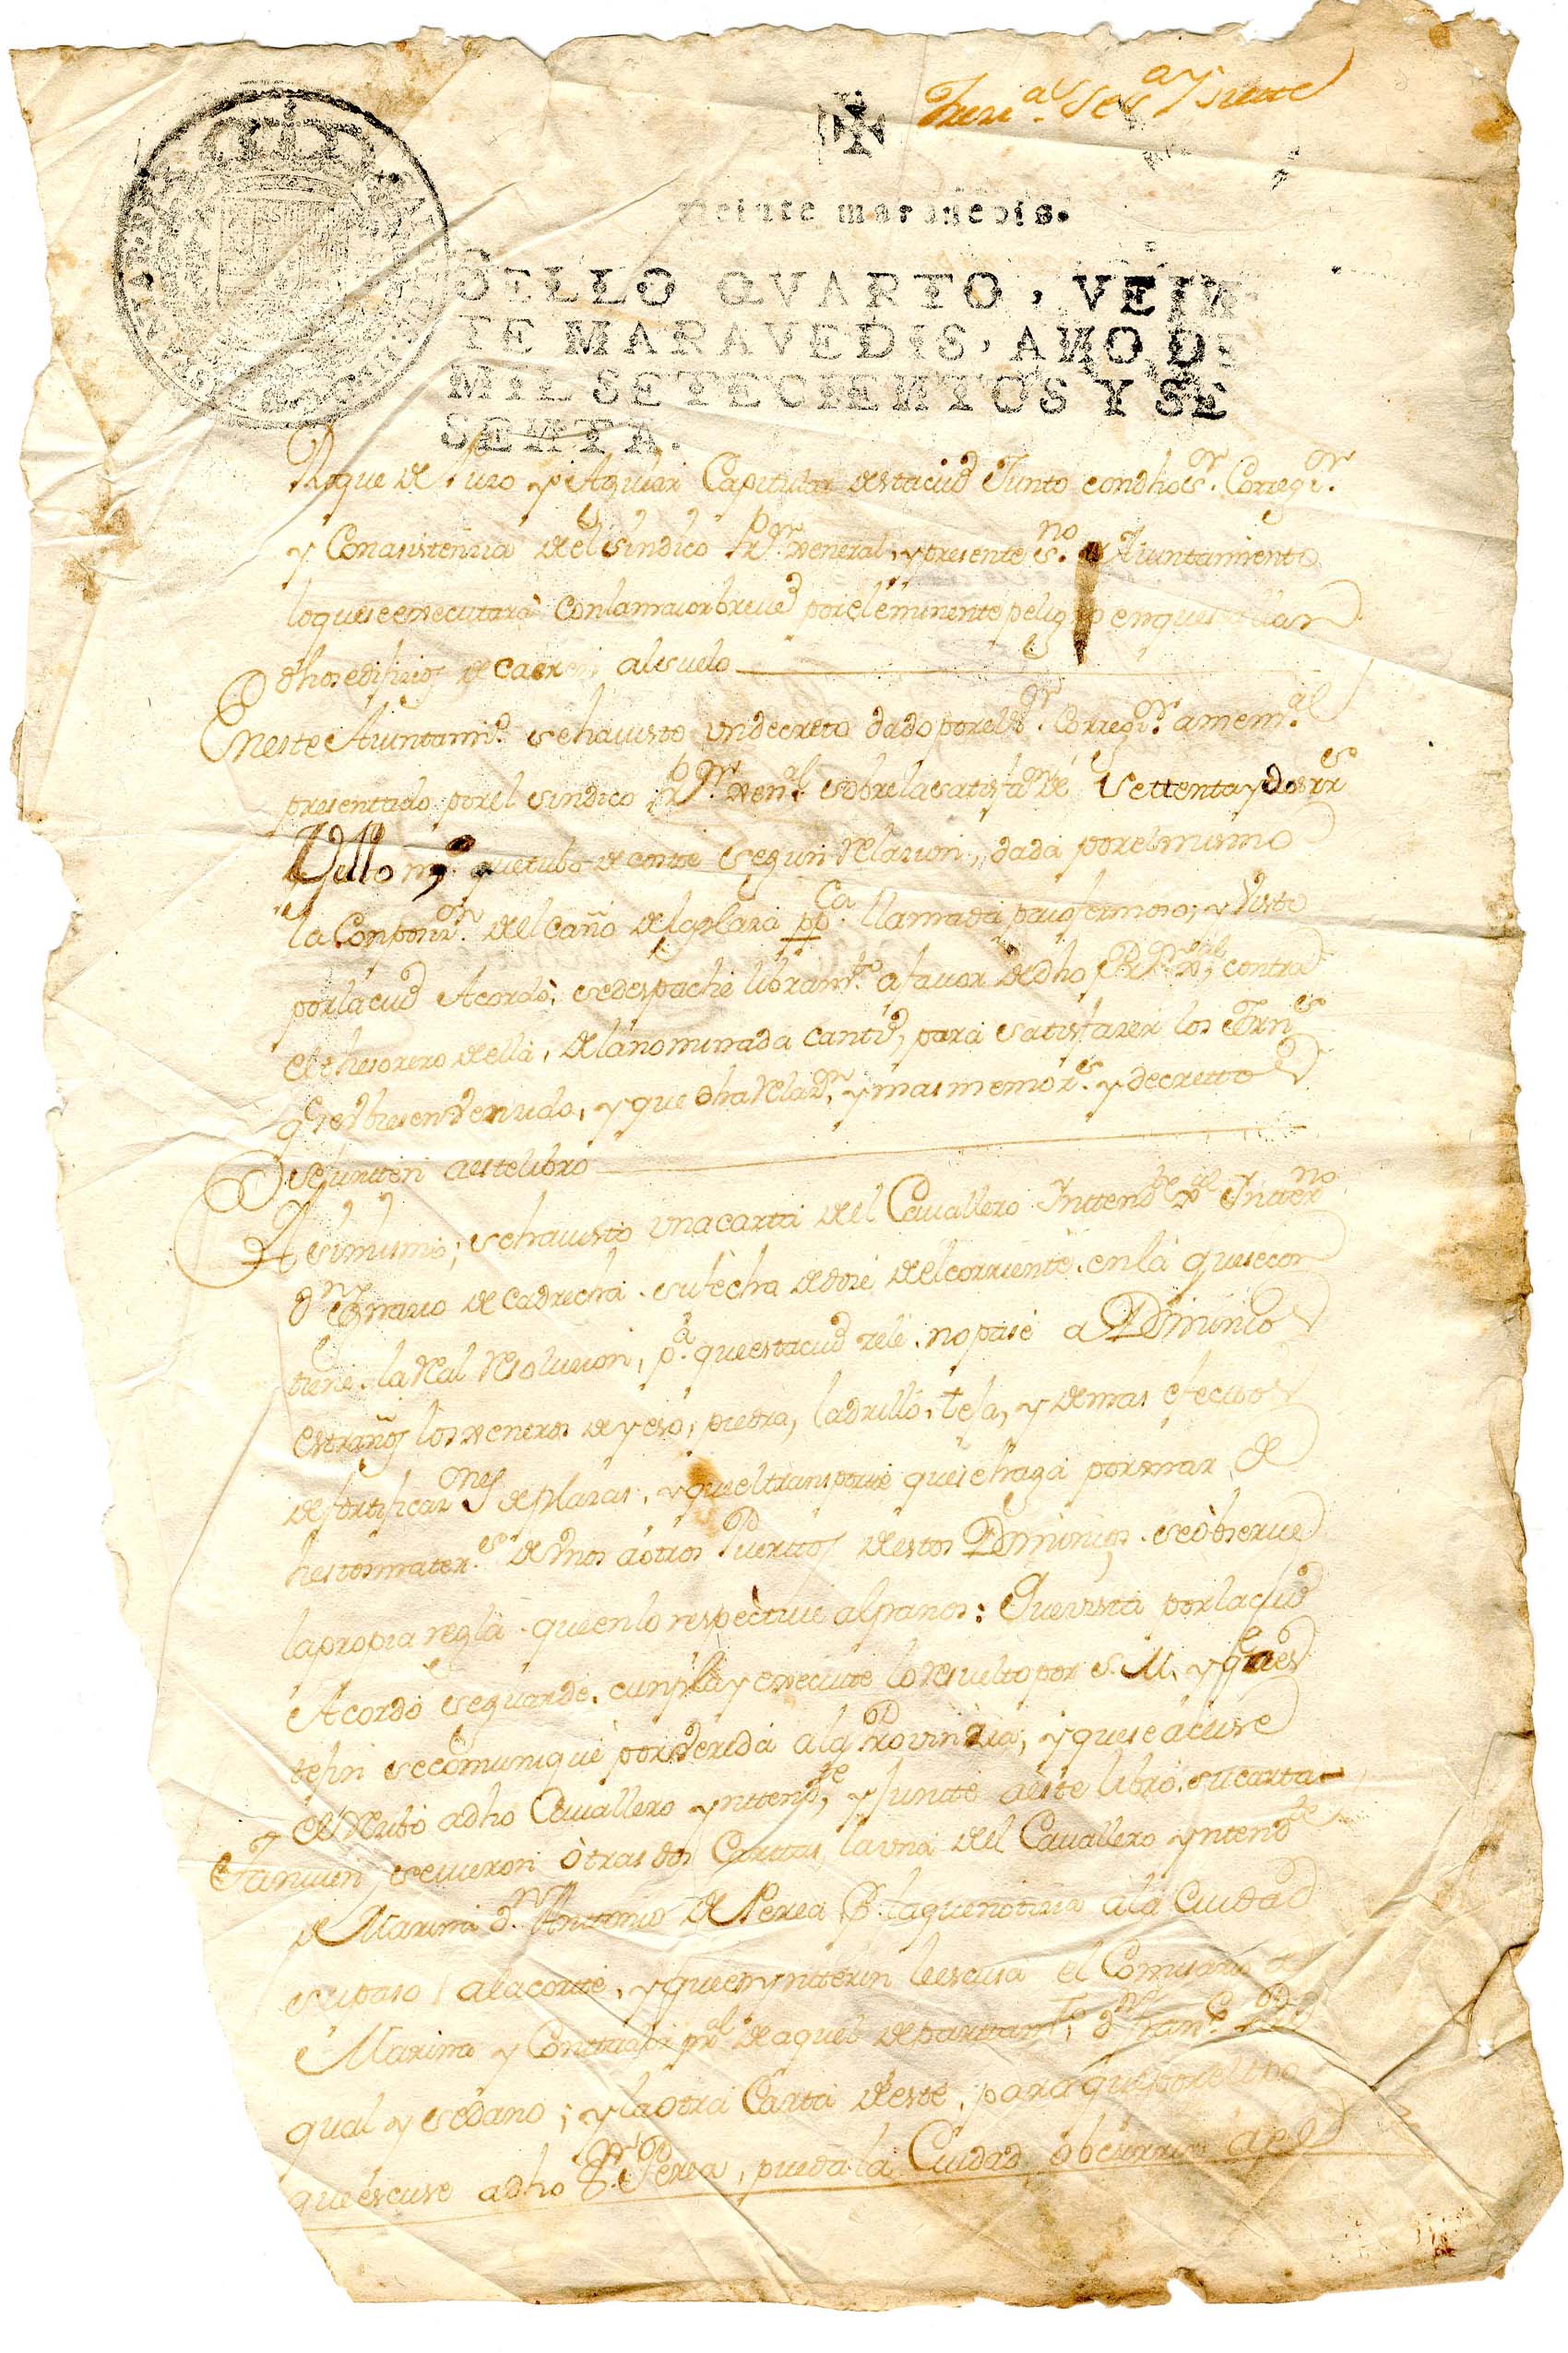 veinte maravedis.
SELLO QVARTO, VEIN-
TE MARAVEDIS, AÑO DE
MIL SETECIENTOS Y SE
SENTA.
Roque de y Aguilar Capitular destaciud Junto condho sr. Corregr.
y Conasistenzia del sindico Pr. General, y presente sno. de Aiuntamiento
loqueseexecutará conlamaiorbreued porel eminente peligro enquese allan
dhos edifizios de caer al suelo
Eneste Aiuntamto. sehauisto undecreto dado porel sr. Corregr. amemal.
presentado porel sindico Pr. Genl. sobrelasatisfazn. de settenta y dos rrs
Vellon, quetubo de coste segun Relazion, dada porelmismo
la Componn. del caño delaplaza ppca. llamada ; y Visto
porlaciud Acordó, sedespache libramto. afauor dedho Pr. Gral, contra
elthesorero della, delanominada cantd, para satisfazer los
y que dha Relazn. y mas memors. y decretto
sejunten aestelibro
Asimismo; sehauisto unacarta del Cauallero Intendte. Gl Intterno
Dn. de Cadrecha sufecha dedoze delcorriente, enla quesecon
tiene laReal Resoluzion, pa. queestaciud zele, nopase a Dominios
estraños losgeneros deyeso, piedra, ladrillo, teja, y demas efectos
defortificaziones deplazas, yqueeltransporte quesehaga pormar de
hestosmaters. deunos aotros Puertos destos Dominios seobserue
lapropia regla queenlo respectiue : Quevista porlaciud
Acordó seguarde, cunpla y execute loresueltopor S. M, y
tefin secomunique porvereda ala Provinzia, y quese acuse
elReziuo adho Cauallero yntendte, y junte aeste libro sucarta
Tamuien seuieron otras dos Carttas, launa del Cauallero yntendte
de Marina Dn. Antonio de Perea laquenotizia ala Ciudad
supaso alacorte, yqueenynterin leescusa el Comisario de
Marina y Contador pral deaquel departamto, Dn. Franco.
qual y sedano; ylaotra Carta deeste, para
queescuse adho Sr. Perea, puedala Ciudad